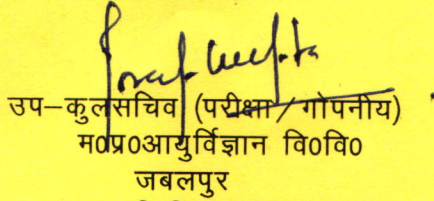 उप–कुलसचिव (परीक्षा / गोपनीय)
म0प्र0आयुर्विज्ञान वि0वि0
जबलपुर